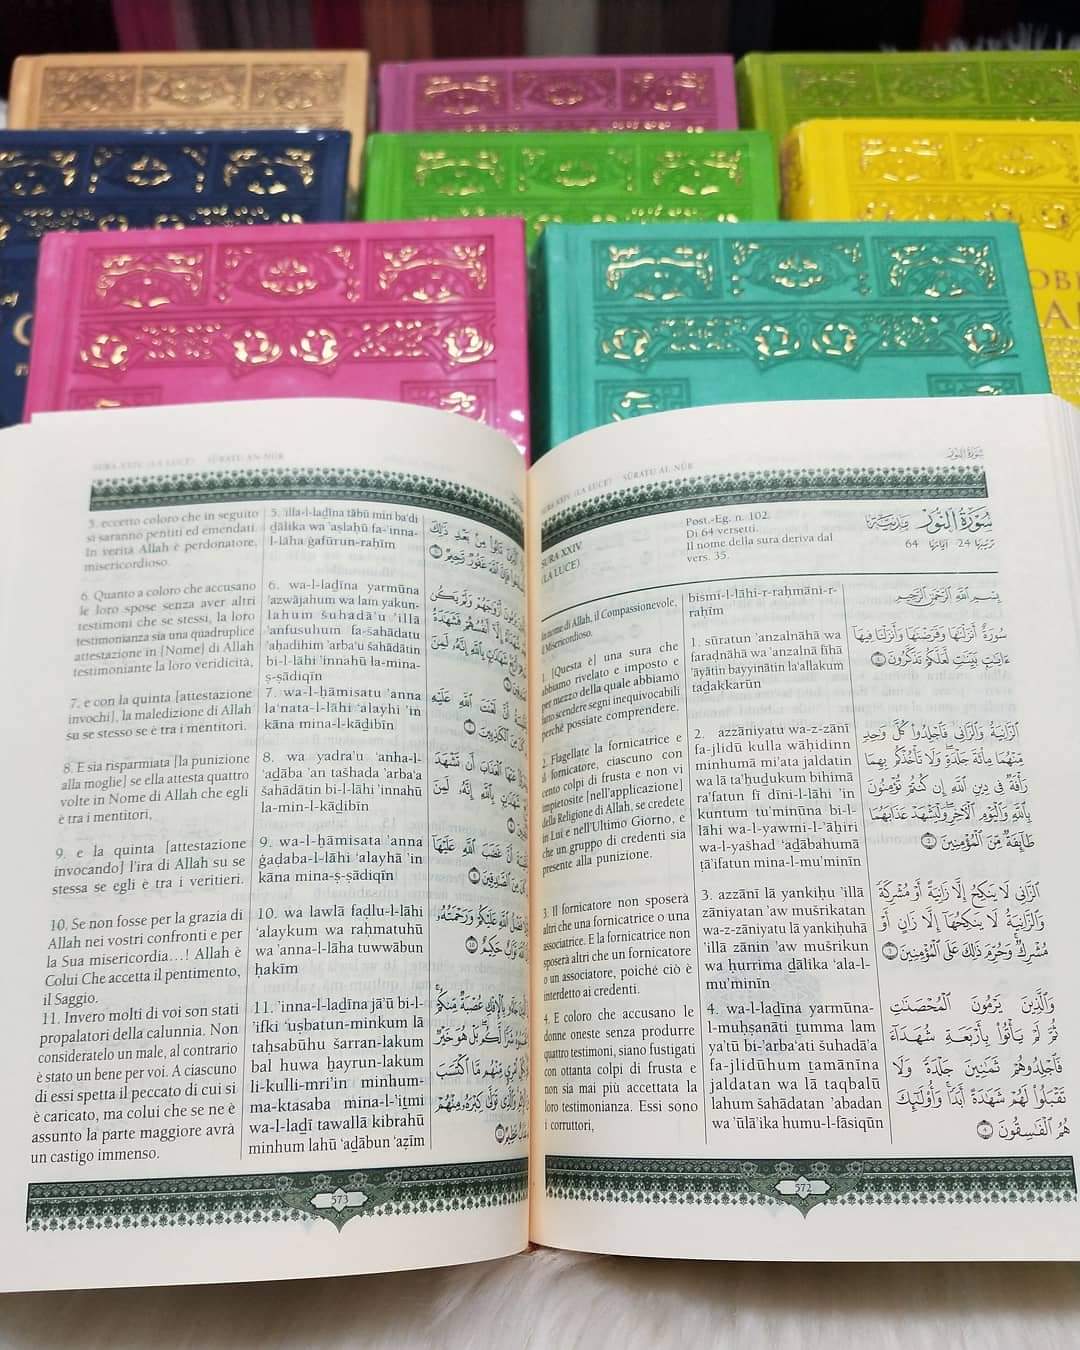 SURA XXIV (LA LUCE) SŪRATU AN-NŪR
3. eccetto coloro che in seguito
si saranno pentiti ed emendati.
In verità Allah è perdonatore,
misericordioso.
6. Quanto a coloro che accusano
le loro spose senza aver altri
testimoni che se stessi, la loro
testimonianza sia una quadruplice
attestazione in [Nome] di Allah
testimoniante la loro veridicità,
7. e con la quinta [attestazione
invochi], la maledizione di Allah
su se stesso se è tra i mentitori.
8. E sia risparmiata [la punizione
alla moglie] se ella attesta quattro
volte in Nome di Allah che egli
è tra i mentitori,
9. e la quinta [attestazione
invocando] l'ira di Allah su se
stessa se egli è tra i veritieri.
10. Se non fosse per la grazia di
Allah nei vostri confronti e per
la Sua misericordia…! Allah è
Colui Che accetta il pentimento,
il Saggio.
11. Invero molti di voi son stati
propalatori della calunnia. Non
consideratelo un male, al contrario
è stato un bene per voi. A ciascuno
di essi spetta il peccato di cui si
è caricato, ma colui che se ne è
assunto la parte maggiore avrà
un castigo immenso.
5. 'illa-l-laḏīna tābū min ba'di
ḏālika wa 'aslaḥū fa-'inna-
l-lāha ġafūrun-raḥīm
6. wa-l-laḏīna yarmūna
'azwājahum wa lam yakun-
lahum šuhadā'u 'illā
'anfusuhum fa-šahādatu
'aḥadihim 'arba'u šahādātin
bi-l-lāhi 'innahū la-mina-
ṣ-ṣādiqīn
7. wa-l-ḫāmisatu 'anna
la'nata-l-lāhi 'alayhi 'in
kāna mina-l-kāḏibīn
8. wa yadra'u 'anha-l-
'aḏāba 'an tašhada 'arba'a
šahādātin bi-l-lāhi 'innahū
la-min-l-kāḏibīn
9. wa-l-ḫāmisata 'anna
ġaḍaba-l-lāhi 'alayhā 'in
kāna mina-ṣ-ṣādiqīn
10. wa lawlā faḍlu-l-lāhi
'alaykum wa raḥmatuhū
wa 'anna-l-lāha tuwwābun
ḥakīm
11. 'inna-l-laḏīna jā'ū bi-l-
'ifki 'uṣbatun-minkum lā
taḥsabūhu šarran-lakum
bal huwa ḫayrun-lakum
li-kulli-mri'in minhum-
ma-ktasaba mina-l-'iṯmi
wa-l-laḏī tawallā kibrahū
minhum lahū 'aḏābun 'aẓīm
573
SURA XXIV (LA LUCE) SŪRATU AL-NŪR
سورة النور
SURA XXIV
(LA LUCE)
Post.-Eg. n. 102.
Di 64 versetti.
Il nome della sura deriva dal
vers. 35.
سُورَةُ النُّورِ مَدَنِيَّة
ترتيبها 24 آياتها 64
In nome di Allah, il Compassionevole,
il Misericordioso.
1. [Questa è] una sura che
abbiamo rivelato e imposto e
per mezzo della quale abbiamo
fatto scendere segni inequivocabili
perché possiate comprendere.
2. Flagellate la fornicatrice e
il fornicatore, ciascuno con
cento colpi di frusta e non vi
impietosite [nell'applicazione]
della Religione di Allah, se credete
in Lui e nell'Ultimo Giorno, e
che un gruppo di credenti sia
presente alla punizione.
3. Il fornicatore non sposerà
altri che una fornicatrice o una
associatrice. E la fornicatrice non
sposerà altri che un fornicatore
o un associatore, poiché ciò è
interdetto ai credenti.
4. E coloro che accusano le
donne oneste senza produrre
quattro testimoni, siano fustigati
con ottanta colpi di frusta e
non sia mai più accettata la
loro testimonianza. Essi sono
i corruttori,
bismi-l-lāhi-r-raḥmāni-r-
raḥīm
1. sūratun 'anzalnāhā wa
faraḍnāhā wa 'anzalnā fīhā
'āyātin bayyinātin la'allakum
taḏakkarūn
2. azzāniyatu wa-z-zānī
fa-jlidū kulla wāḥidinn
minhumā mi'ata jaldatin
wa lā ta'ḫuḏkum bihimā
ra'fatun fī dīni-l-lāhi 'in
kuntum tu'minūna bi-l-
lāhi wa-l-yawmi-l-'āḫiri
wa-l-yašhad 'aḏābahumā
ṭā'ifatun mina-l-mu'minīn
3. azzānī lā yankiḥu 'illā
zāniyatan 'aw mušrikatan
wa-z-zāniyatu lā yankiḥuhā
'illā zānin 'aw mušrikun
wa ḥurrima ḏālika 'ala-l-
mu'minīn
4. wa-l-laḏīna yarmūna-
l-muḥṣanāti ṯumma lam
ya'tū bi-'arba'ati šuhadā'a
fa-jlidūhum ṯamānīna
jaldatan wa lā taqbalū
lahum šahādatan 'abadan
wa 'ūlā'ika humu-l-fāsiqūn
بِسْمِ اللَّهِ الرَّحْمَٰنِ الرَّحِيمِ
سُورَةٌ أَنزَلْنَاهَا وَفَرَضْنَاهَا وَأَنزَلْنَا فِيهَا
ءَايَٰتٍ بَيِّنَٰتٍ لَّعَلَّكُمْ تَذَكَّرُونَ ١
الزَّانِيَةُ وَالزَّانِي فَاجْلِدُوا كُلَّ وَاحِدٍ
مِّنْهُمَا مِائَةَ جَلْدَةٍ وَلَا تَأْخُذْكُم بِهِمَا
رَأْفَةٌ فِي دِينِ اللَّهِ إِن كُنتُمْ تُؤْمِنُونَ
بِاللَّهِ وَالْيَوْمِ الْآخِرِ وَلْيَشْهَدْ عَذَابَهُمَا
طَائِفَةٌ مِّنَ الْمُؤْمِنِينَ ٢
الزَّانِي لَا يَنكِحُ إِلَّا زَانِيَةً أَوْ مُشْرِكَةً
وَالزَّانِيَةُ لَا يَنكِحُهَا إِلَّا زَانٍ أَوْ
مُشْرِكٌ وَحُرِّمَ ذَٰلِكَ عَلَى الْمُؤْمِنِينَ ٣
وَالَّذِينَ يَرْمُونَ الْمُحْصَنَٰتِ
ثُمَّ لَمْ يَأْتُوا بِأَرْبَعَةِ شُهَدَاءَ
فَاجْلِدُوهُمْ ثَمَٰنِينَ جَلْدَةً وَلَا
تَقْبَلُوا لَهُمْ شَهَٰدَةً أَبَدًا وَأُولَٰئِكَ
هُمُ الْفَٰسِقُونَ ٤
572